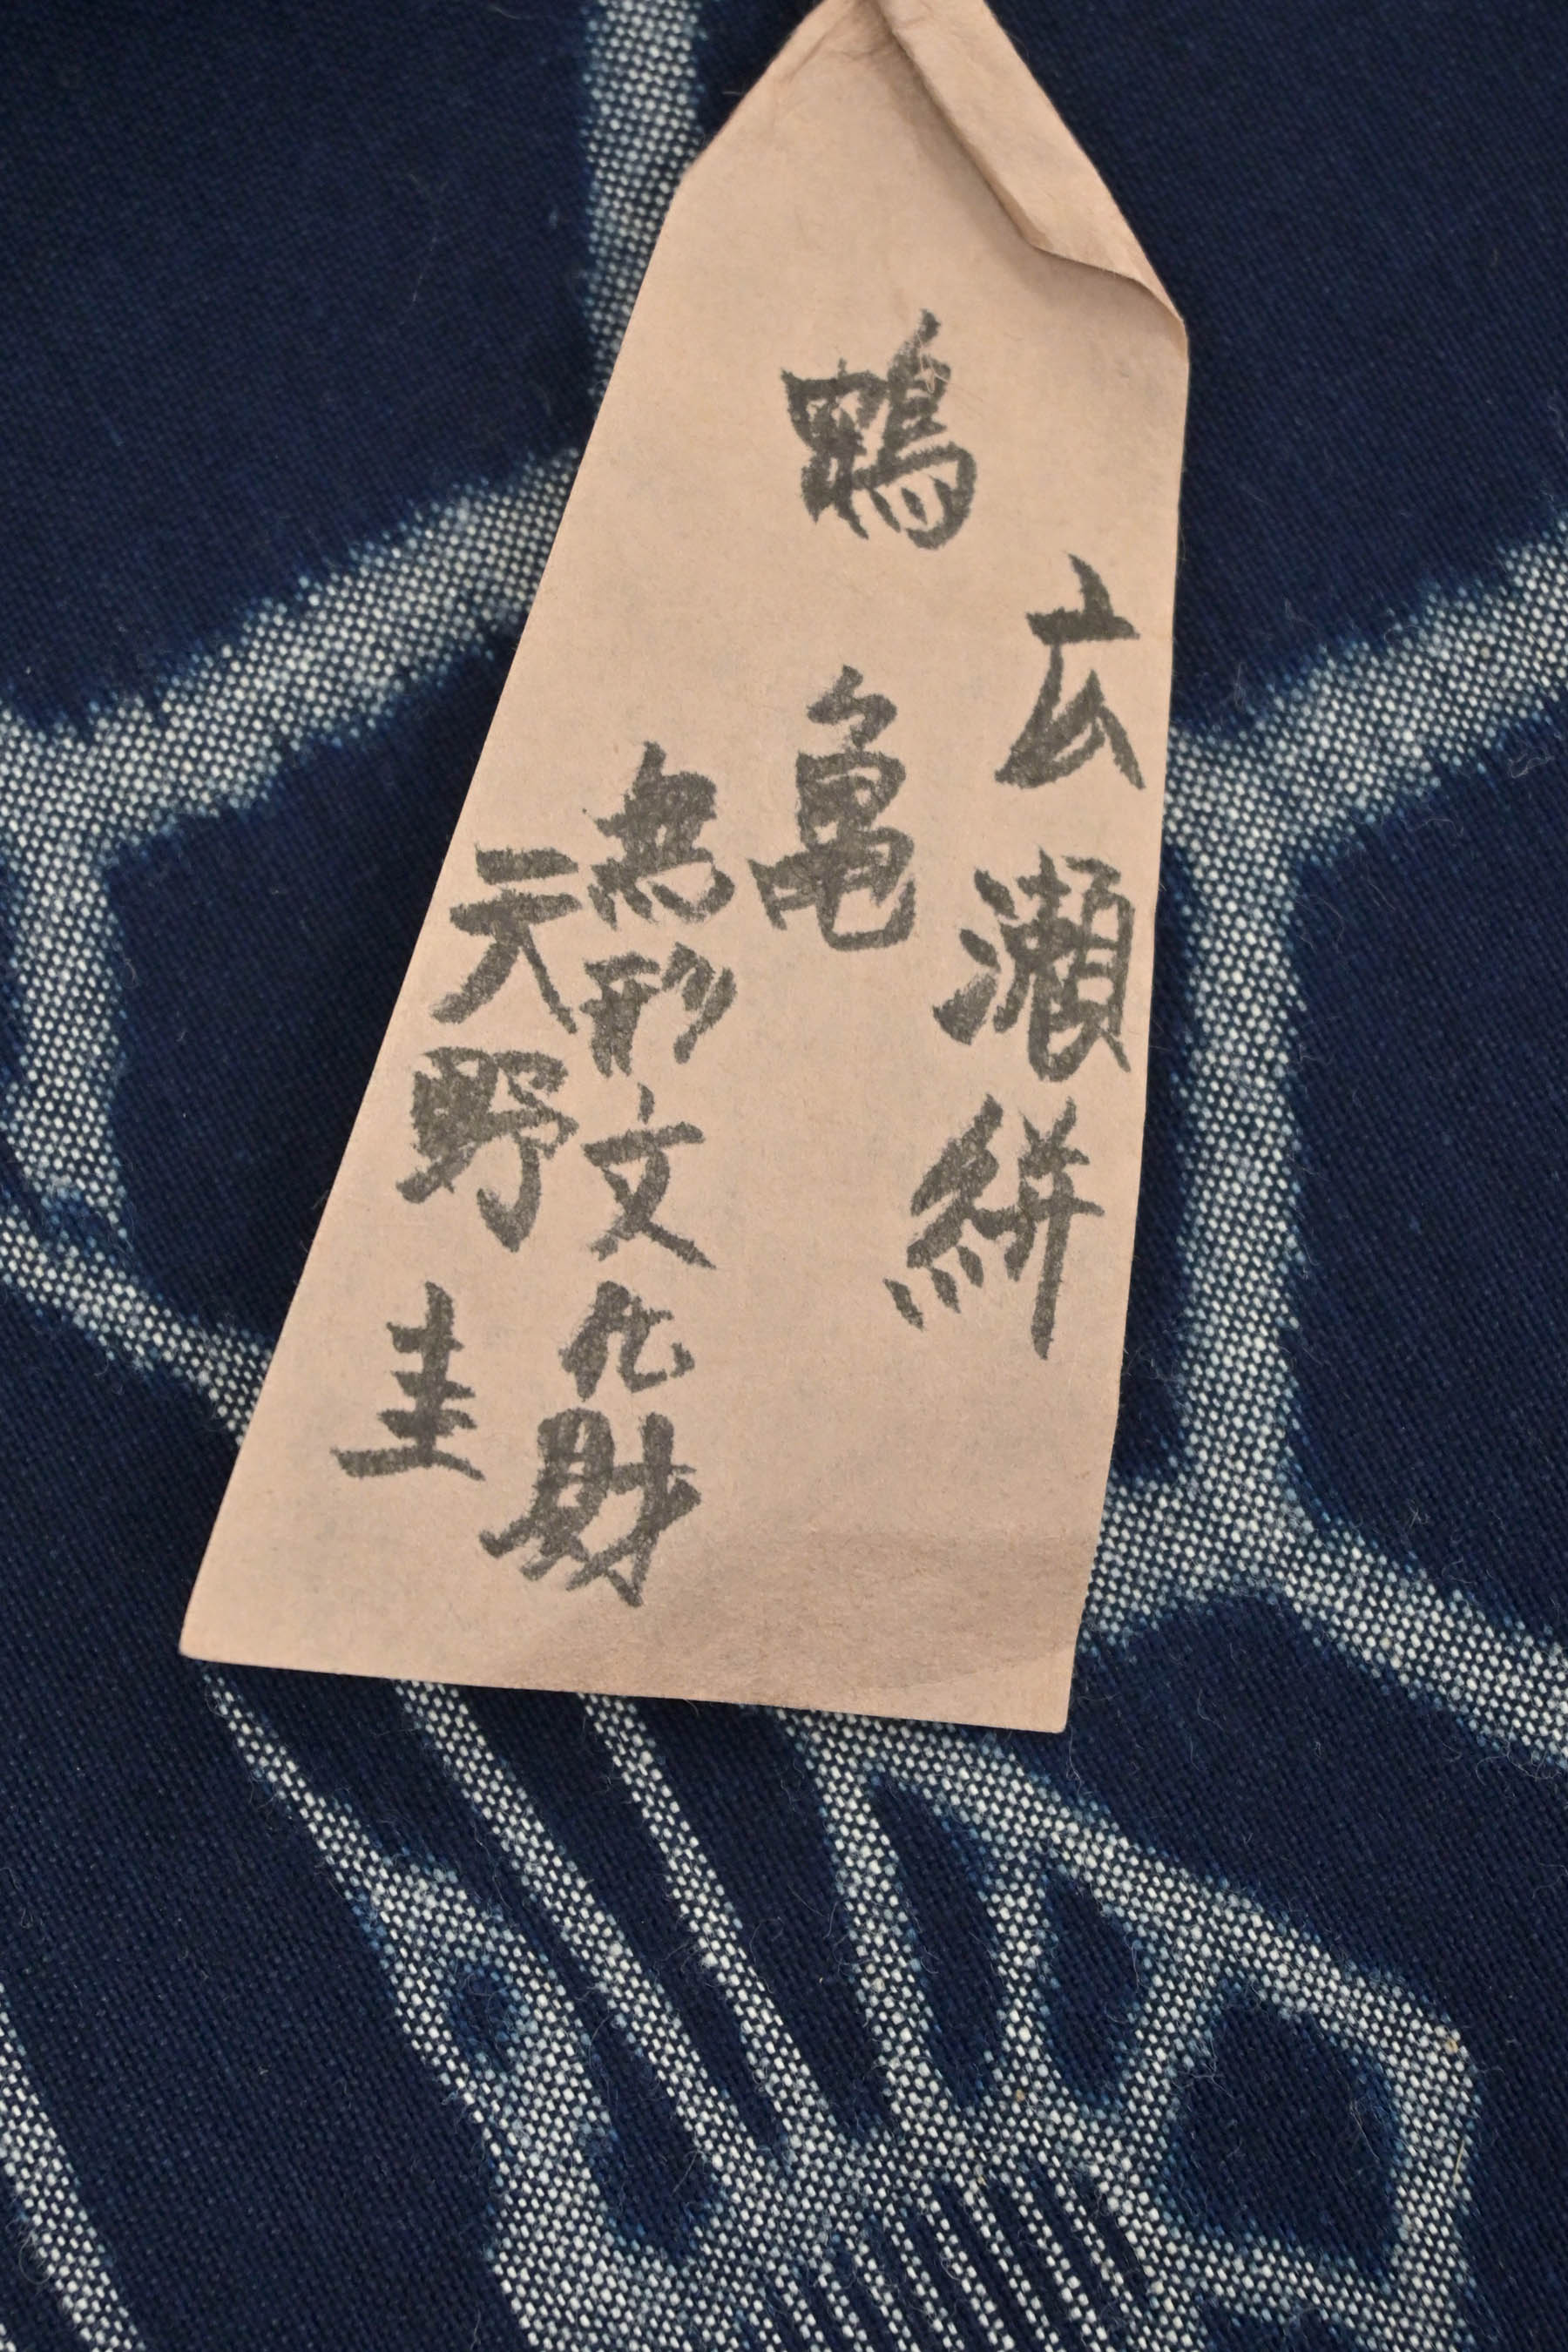 広瀬絣
鶴亀
無形文化財
天野圭